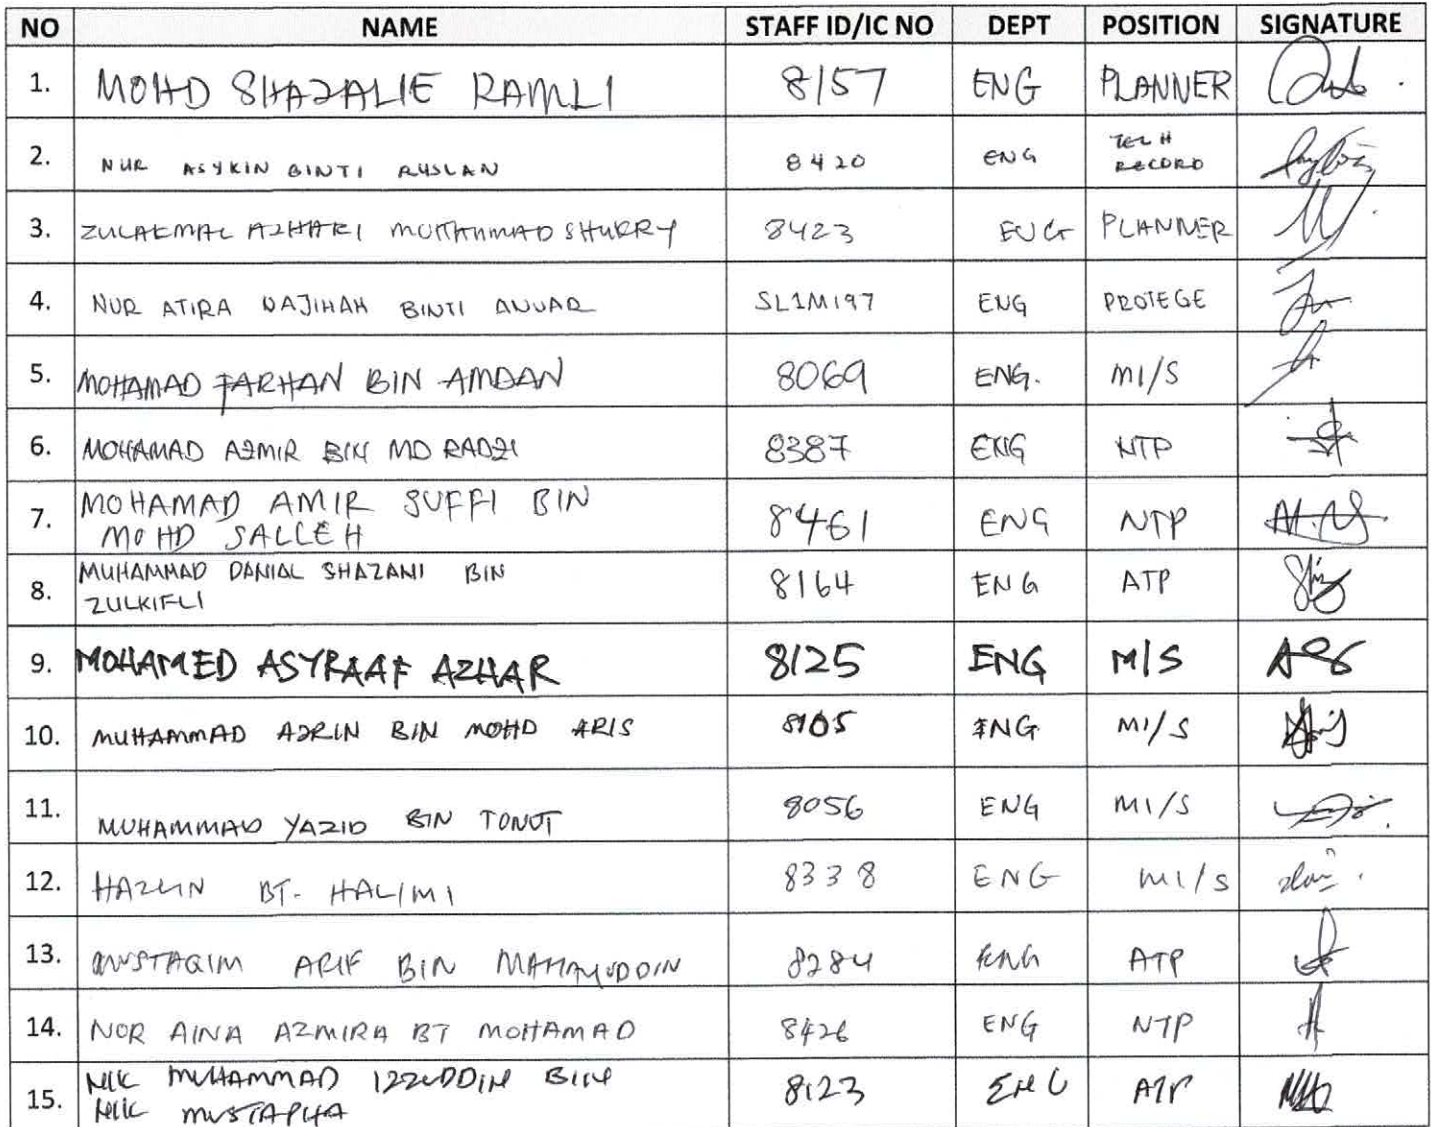 NO NAME STAFF ID/IC NO DEPT POSITION SIGNATURE
1. MOHD SHAZALIE RAMLI 8157 ENG PLANNER
2. NUR ASYKIN BINTI RUSLAN 8420 ENG TECH RECORD
3. ZULAKMAL AZHARI MUHAMMAD SHUKRY 8423 ENG PLANNER
4. NUR ATIRA NAJIHAH BINTI ANUAR SL1M197 ENG PROTEGE
5. MOHAMAD FARHAN BIN AMDAN 8069 ENG. MI/S
6. MOHAMAD AZMIR BIN MD RADZI 8387 ENG NTP
7. MOHAMAD AMIR SUFFI BIN 8461 ENG NTP
MOHD SALLEH
8. MUHAMMAD DANIAL SHAZANI BIN 8164 ENG ATP
ZULKIFLI
9. MOHAMED ASYRAAF AZHAR 8125 ENG M/S
10. MUHAMMAD AZRIN BIN MOHD ARIS 8105 ENG MI/S
11. MUHAMMAD YAZID BIN TONOT 8056 ENG MI/S
12. HAZLIN BT. HALIMI 8338 ENG MI/S
13. MUSTAQIM ARIF BIN MAHAMUDDIN 8284 ENG ATP
14. NOR AINA AZMIRA BT MOHAMAD 8426 ENG NTP
15. NIK MUHAMMAD IZZUDDIN BIN 8123 ENG ATP
NIK MUSTAPHA